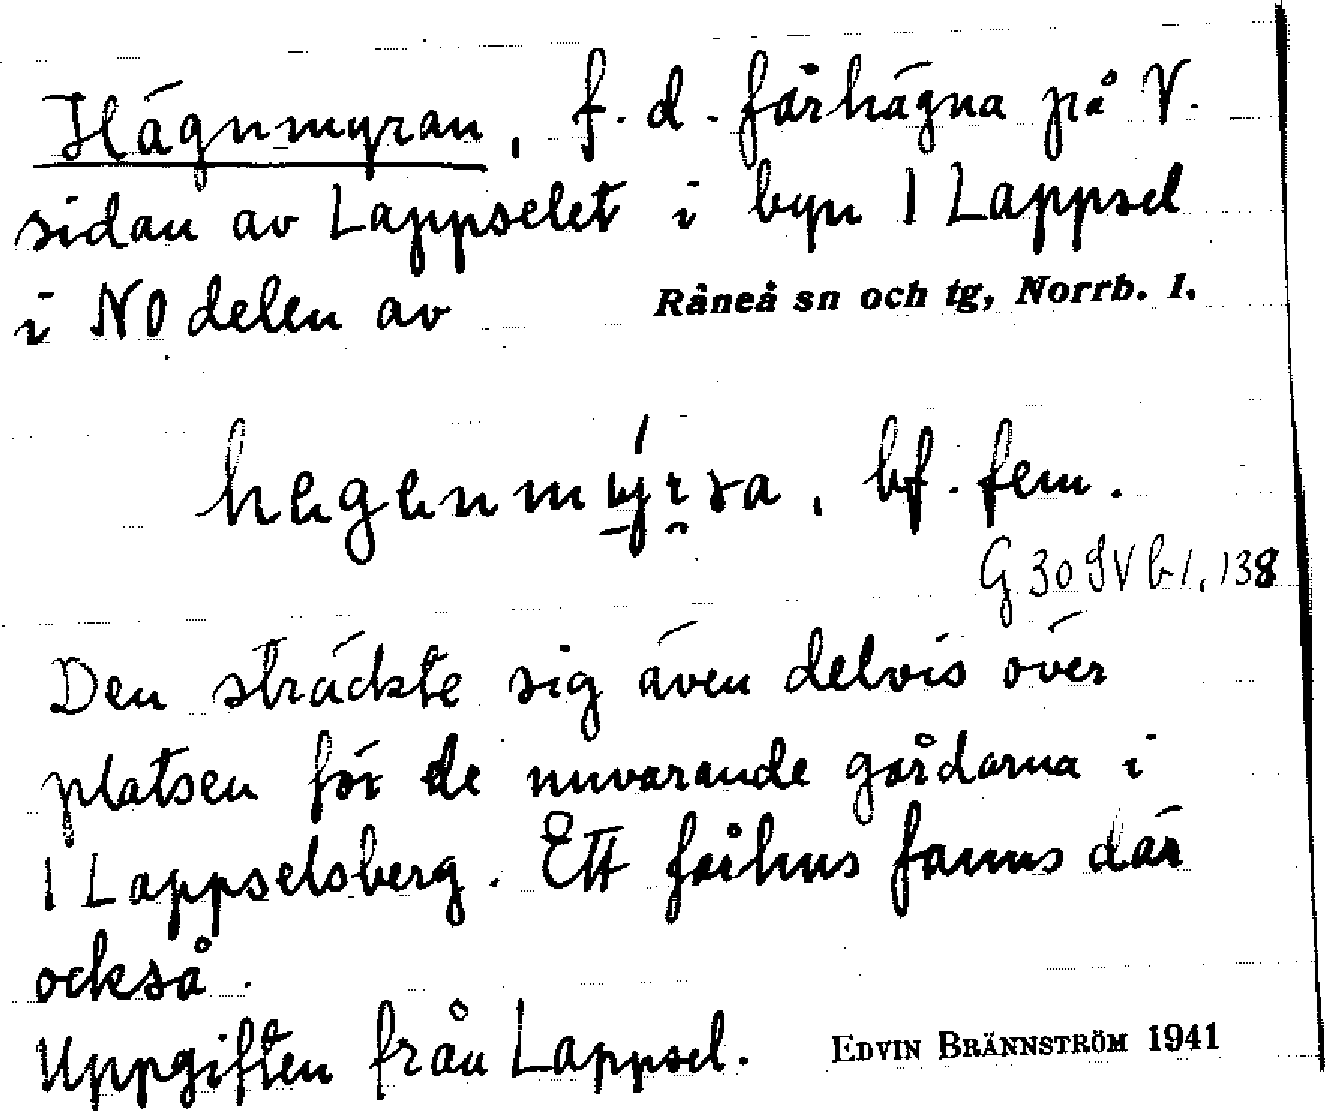 Hägnmyran, f. d. fårhägna på V.
sidan av Lappselet i byn 1 Lappsel
i NO delen av Råneå sn och tg, Norrb. l.
hegenmyrra, bf. fem.
G 30 IV b 1, 138
Den sträckte sig även delvis över
platsen för de nuvarande gårdarna i
1 Lappselsberg. Ett fårhus fanns där
också.
Uppgiften från Lappsel. EDVIN BRÄNNSTRÖM 1941